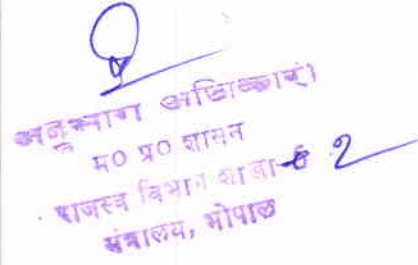 अनुभाग अधिकारी
म० प्र० शासन
राजस्व विभाग शाखा-६ 2
मंत्रालय, भोपाल